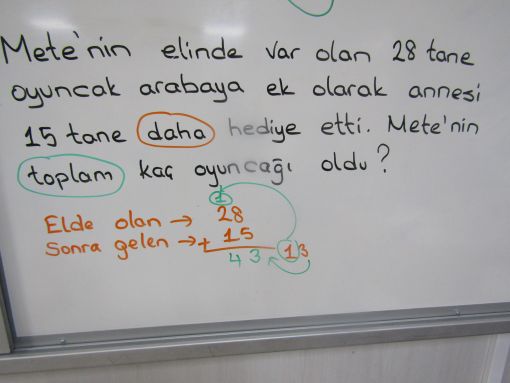 Mete'nin elinde var olan 28 tane
oyuncak arabaya ek olarak annesi
15 tane daha hediye etti. Mete'nin
toplam kaç oyuncağı oldu?
1
Elde olan → 28
Sonra gelen → + 15
43 13